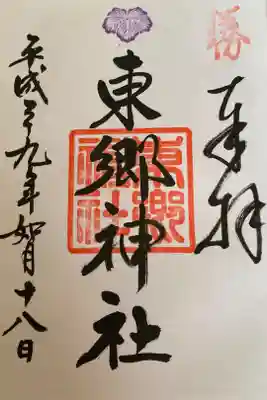 勝
奉拝
東郷神社
東郷神社
平成二九年如月十八日